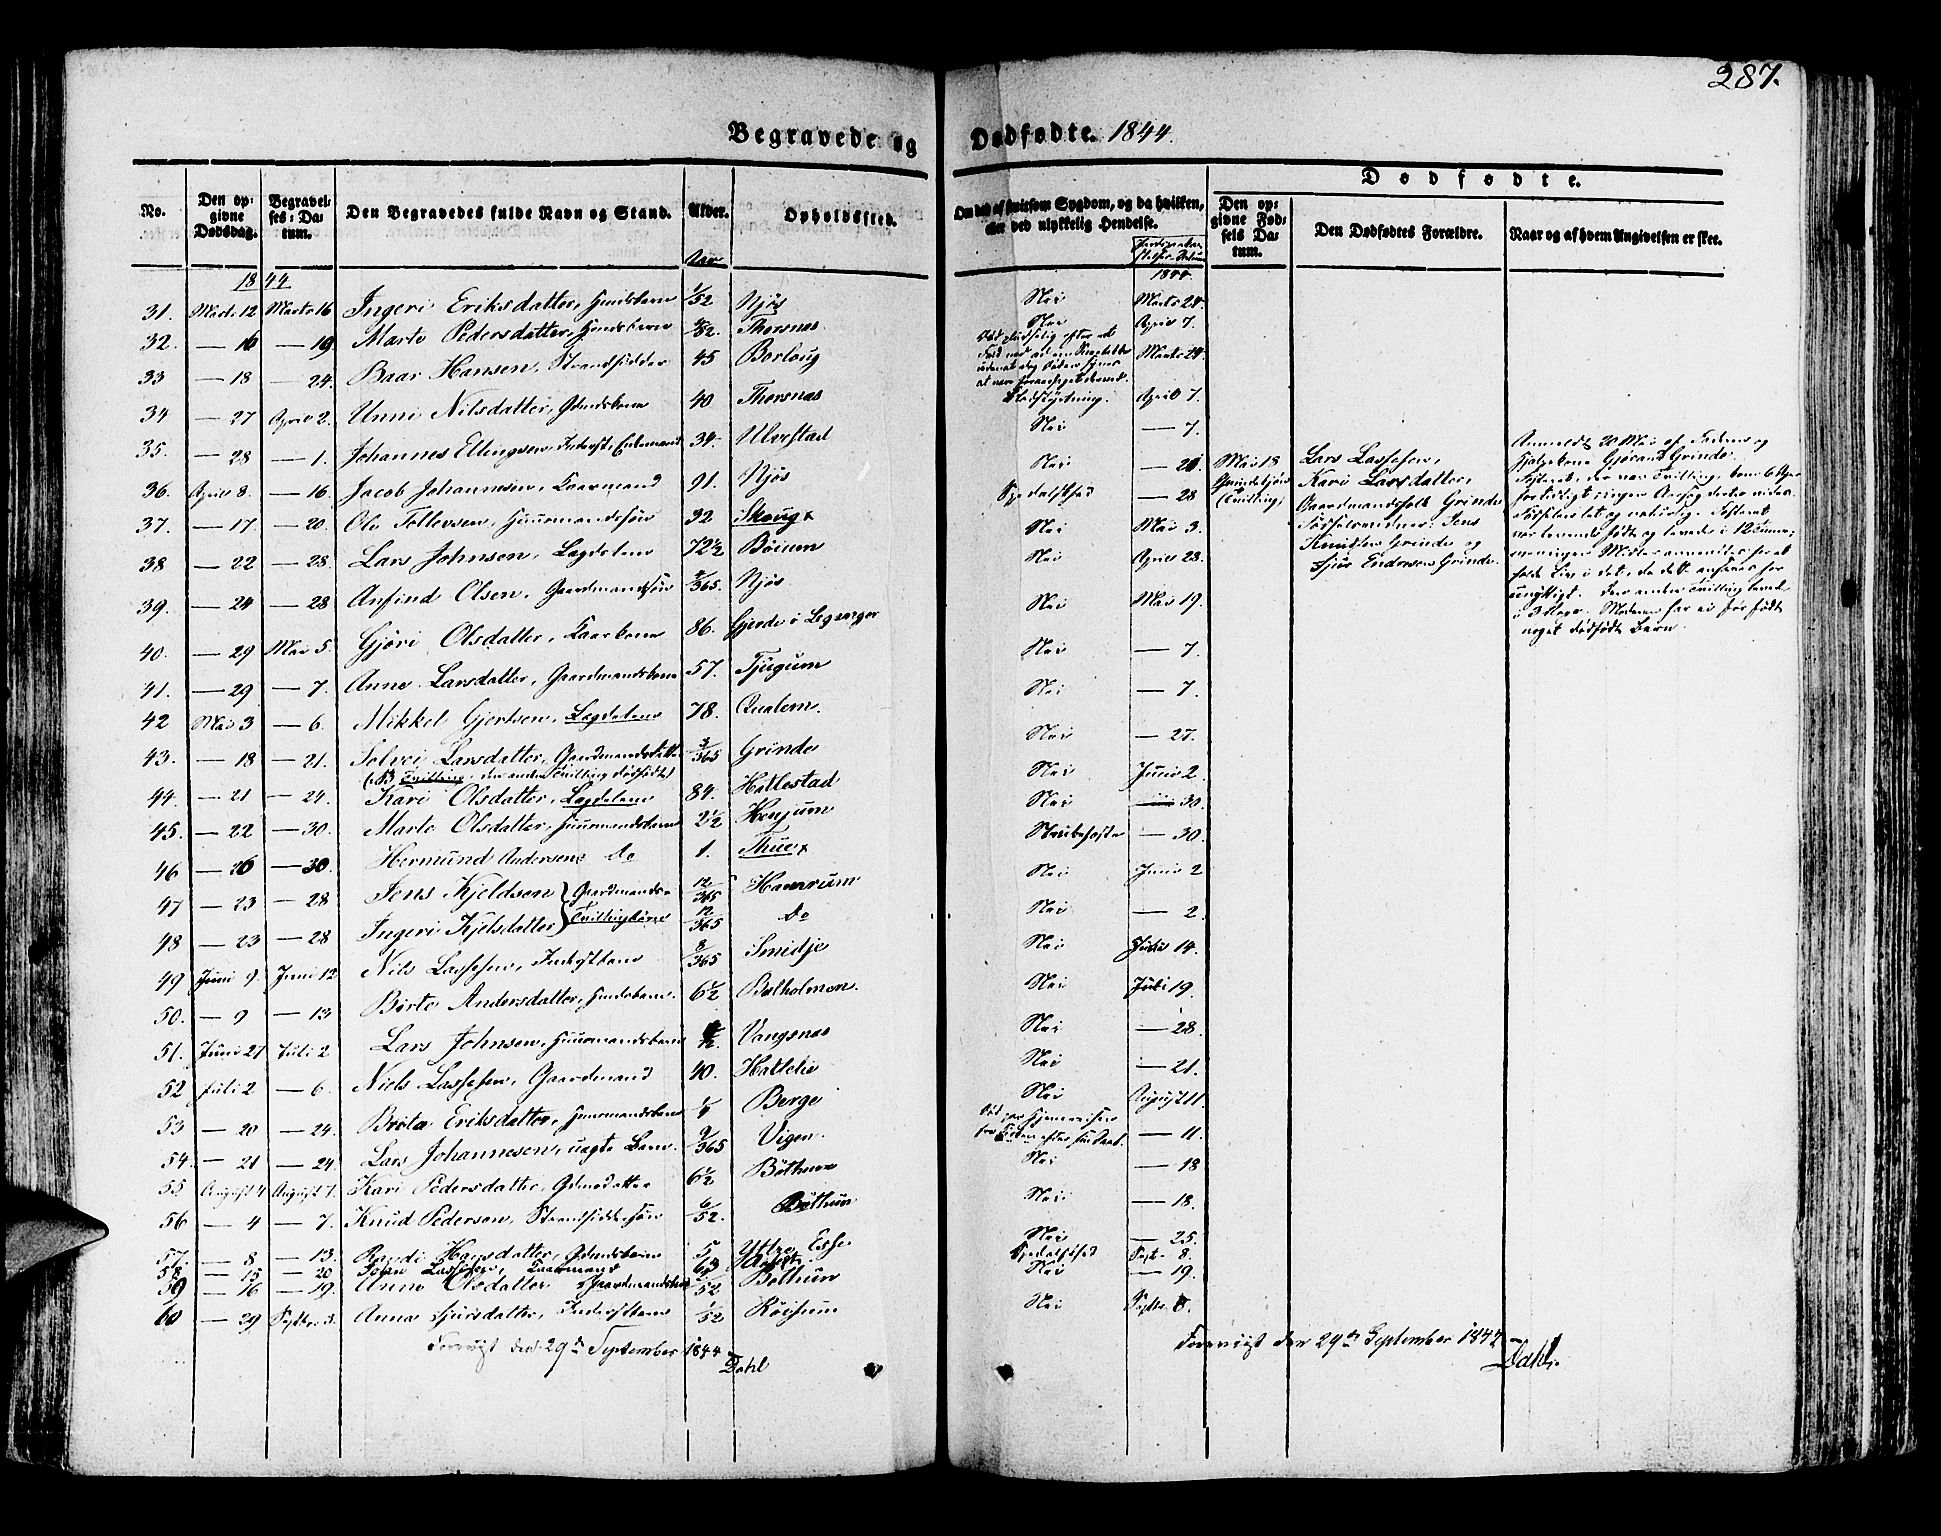 287.
Begravede og Dødfødte. 1844.
No.
Den opgivne Dødsdag.
Begravelses-Datum.
Den Begravedes fulde Navn og Stand.
Alder.
Opholdssted.
Om død af smitsom Sygdom, og da hvilken, eller ved ulykkelig Hendelse.
Dødfødte.
Den opgivne Fødsels Datum.
Den Dødfødtes Forældre.
Naar og af hvem Angivelsen er skee.
Aar
1844
1844.
31. Marts 12 Marts 16 Ingeri Eriksdatter, Huusbarn 1/52 Njøs Nei Marts 24.
32. — 16 — 19 Marte Pedersdatter, /52. Thorsnæs Nei April 7.
33 — 18 — 24. Baar Hansen, Strandsidder 45 Borlaug Død pludselig efter at Marts 24.
34 — 27 April 2. Unni Nilsdatter, 40 Thorsnæs Blodstyrtning. April 7.
35. — 28 — 1. Johannes Ellingsen, Inderst, Enkemand 34 Ulvestad Nei — 7.
36. April 8. — 16. Jacob Johannesen, Kaarmand 91. Njøs Nei — 21
37. — 17 — 20. Ole Tollevsen, Huusmandssøn 32 Skoug Spedalskhed — 28
38 — 22 — 28. Lars Johnsen, Lægdslem 72½ Bøium Nei Mai 3.
39. — 24 — 28 Anfind Olsen, Gaardmandssøn /365. Njøs Nei April 28.
40. — 29 Mai 5. Gjøri Olsdatter, Kaarkone 86. Gjerde i Leganger Nei Mai 19.
41. — 29 — 7. Anne Larsdatter, Gaardmandskone 57. Tjugum Nei — 7.
42 Mai 3 — 6. Mikkel Gjertsen, Lægdslem 78. Qualem. Nei — 7.
43. — 18 — 21. Solvei Larsdatter, Gaardmandsdatter 3/365 Grinde Nei — 27.
(NB. Tvilling, den anden Tvilling dødfødt)
44. — 21 — 24. Kari Olsdatter, Lægdslem 84. Hillestad Nei Juni 2.
45. — 22 — 30. Marte Olsdatter, Huusmandsbarn 2½ Henjum Nei — 30.
46 — 26 — 30 Hermund Andersen do 1. Thue Strubehoste — 30.
47 — 23 — 28 Jens Kjeldsen Gaardmands- 12/365 Hamrum Nei Juni 2
48 — 23 — 28 Ingeri Kjelsdatter Tvillingbørn 12/365 do Nei — 2.
49 Juni 9. Juni 12 Nils Lassesen, Inderstbarn 8/365 Smidje Nei Juli 14.
50. — 9 — 13 Børte Andersdatter, Huusbarn. 6½ Balholmen. Nei Juli 19.
51. Juni 27 Juli 2 Lars Johnsen, Huusmandsbarn /12. Vangsnæs Nei — 28.
52 Juli 2 — 6. Niels Lassesen, Gaardmand 40. Hallelie Nei — 21.
53 — 20 — 24. Brita Eriksdatter, Huusmandsbarn 1/4 Berge Nei August 11.
54. — 21 — 24. Lars Johannesen, uægte Barn. 9/365 Vigen. — 11.
55 August 4 August 7. Kari Pedersdatter, 6½ Bøthun Nei — 18
56 — 4 — 7. Knud Pedersen, Strandsidder søn 6/52. Bøthun Nei — 18.
57. — 8 — 13. Randi Hansdatter, 5 Yttre Esse Nei — 25.
58 — 15 — 20 John Lassesen, Kaarmand 63 Spedalskhed Septr 8.
59 — 16 — 19. Anne Olsdatter Gaardmandsbarn /52 Bøthun Nei — 19.
60 — 29 Septbr. 3. Anna Sjursdatter, Inderstbarn 1/52 Røisum Nei Septbr. 8.
Mai 18
Grinde
(Tvilling)
Lars Lassesen,
Kari Larsdatter,
Gaardmandsfolk Grinde
Jens
Knudsen Grinde og
Endresen Grinde.
Anmeldt 20 Mai af Faderen og
Gjøran Grinde.
og naturlig. Fosteret
var levende født og levede i 12
holde Liv i det, da det ansees for
unyttigt. Den anden Tvilling levede
i 3 Dage. Moderen har ei før født
noget dødfødt Barn.
Foreviist den 29de September 1844
Dahl
Foreviist den 29de September 1844
Dahl.